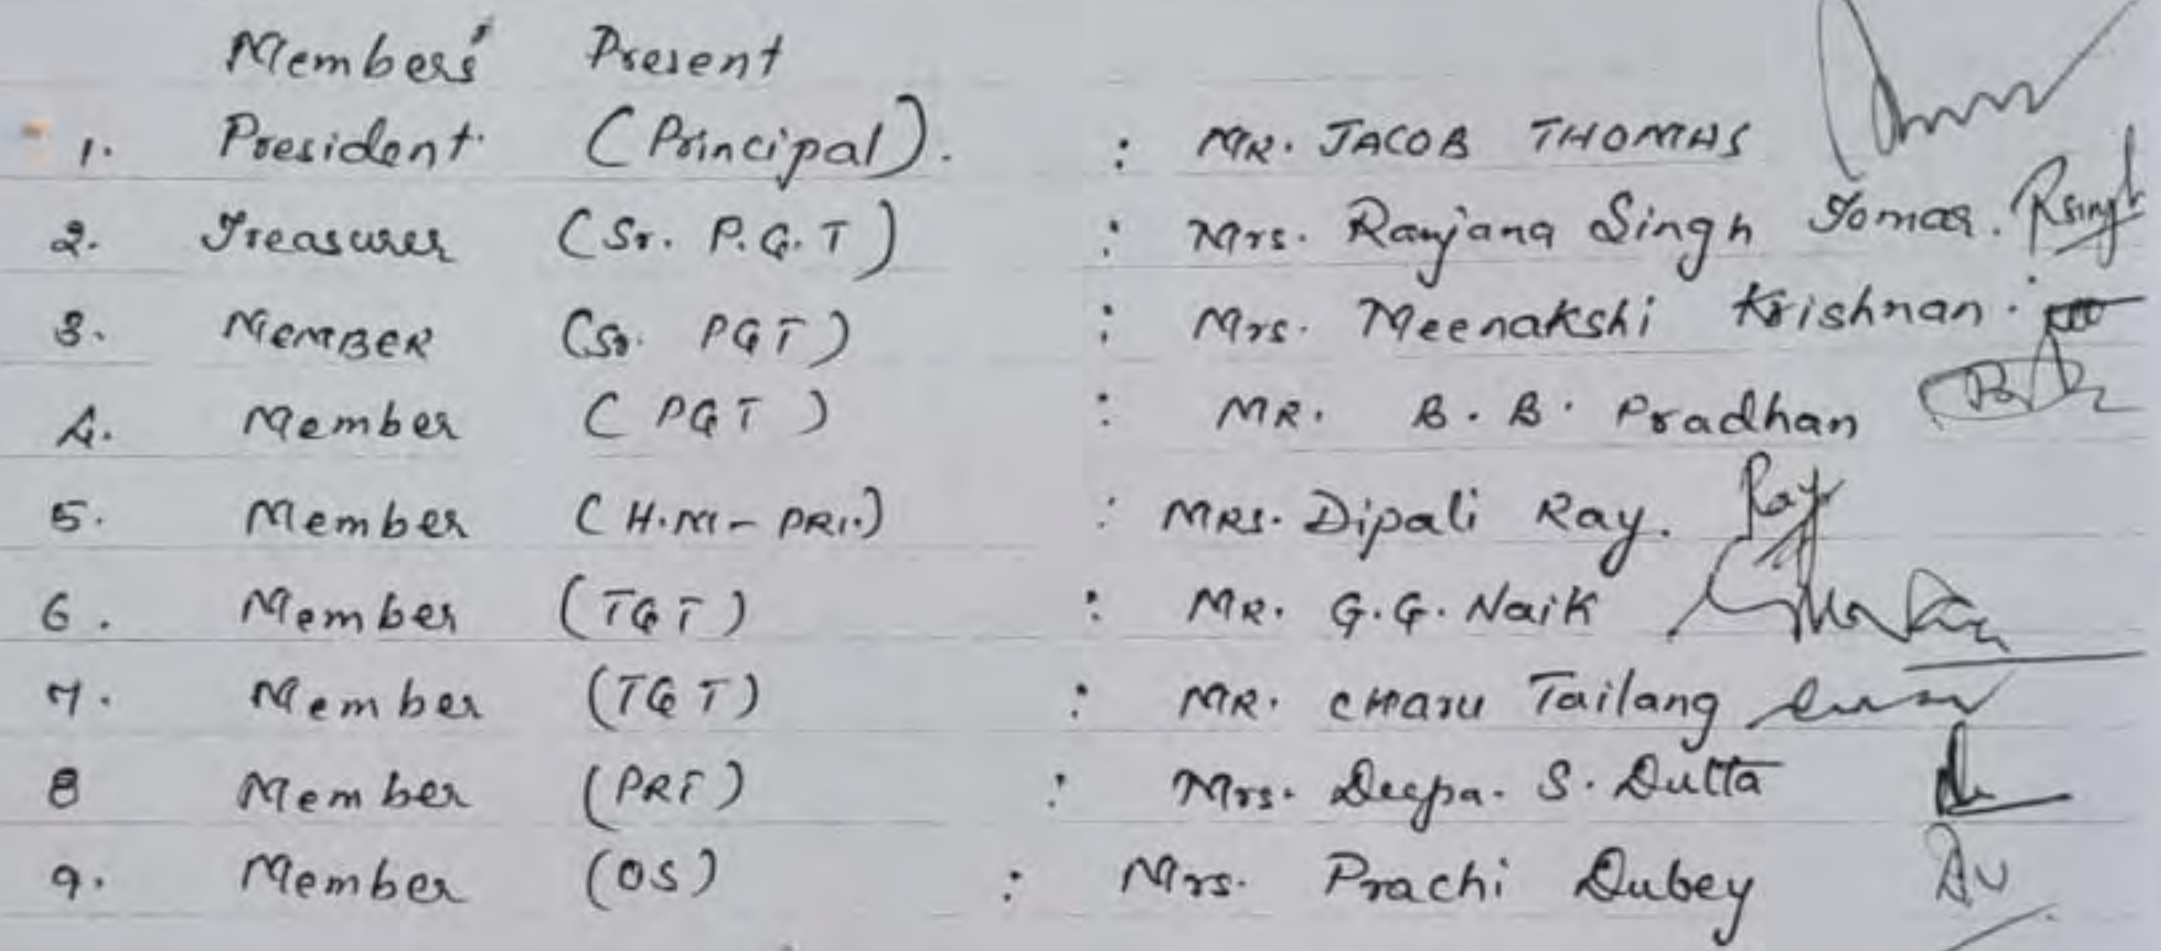 Members' Present
1. President (Principal). : MR. JACOB THOMAS
2. Treasurer (Sr. P.G.T) : Mrs. Ranjana Singh Tomar. RSingh
3. MEMBER (Sr. PGT) : Mrs. Meenakshi Krishnan.
4. Member (PGT) : MR. B. B. Pradhan
5. Member (H.M - PRI.) : MRS. Dipali Ray. Ray
6. Member (TGT) : MR. G.G. Naik
7. Member (TGT) : MR. CHARU Tailang
8 Member (PRT) : Mrs. Deepa. S. Dutta
9. Member (OS) : Mrs. Prachi Dubey